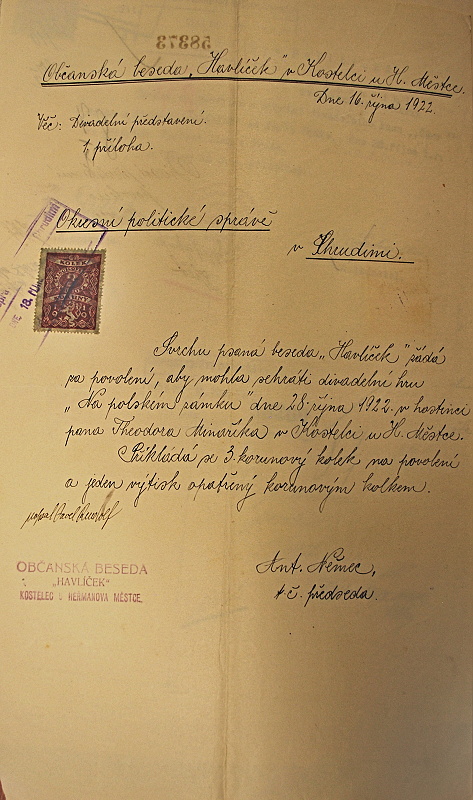 58373
Občanská beseda „Havlíček" v Kostelci u H. Městce.
Dne 16. října 1922.
Věc: Divadelní představení.
1 příloha.
Okresní politické správě
v Chrudimi.
KOLEK
18.
Svrchu psaná beseda „Havlíček" žádá
za povolení, aby mohla sehráti divadelní hru
„Na polském zámku" dne 28. října 1922. v hostinci
pana Theodora Minaříka v Kostelci u H. Městce.
Přikládá se 3. korunový kolek na povolení
a jeden výtisk opatřený korunovým kolkem.
napsal Pavel
OBČANSKÁ BESEDA
„HAVLÍČEK"
KOSTELEC u HEŘMANOVA MĚSTCE.
Ant. Němec,
t. č. předseda.